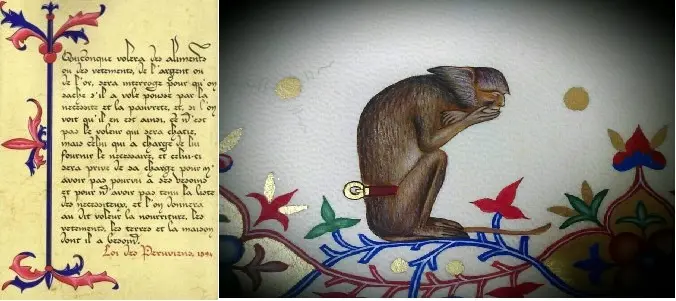 Quiconque volera des aliments
ou des vêtements, de l'argent ou
de l'or, sera interrogé pour qu'on
sache s'il a volé poussé par la
nécessité et la pauvreté, et, si l'on
voit qu'il en est ainsi, ce n'est
pas le voleur qui sera châtié,
mais celui qui a charge de lui
fournir le nécessaire, et celui-ci
sera privé de sa charge pour n'
avoir pas pourvu à ses besoins
et pour n'avoir pas tenu la liste
des nécessiteux, et l'on donnera
au dit voleur la nourriture, les
vêtements, les terres et la maison
dont il a besoin.
Loi des Péruviens,